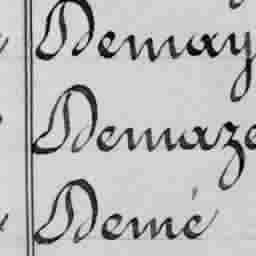 Demay
Demaze
Demé